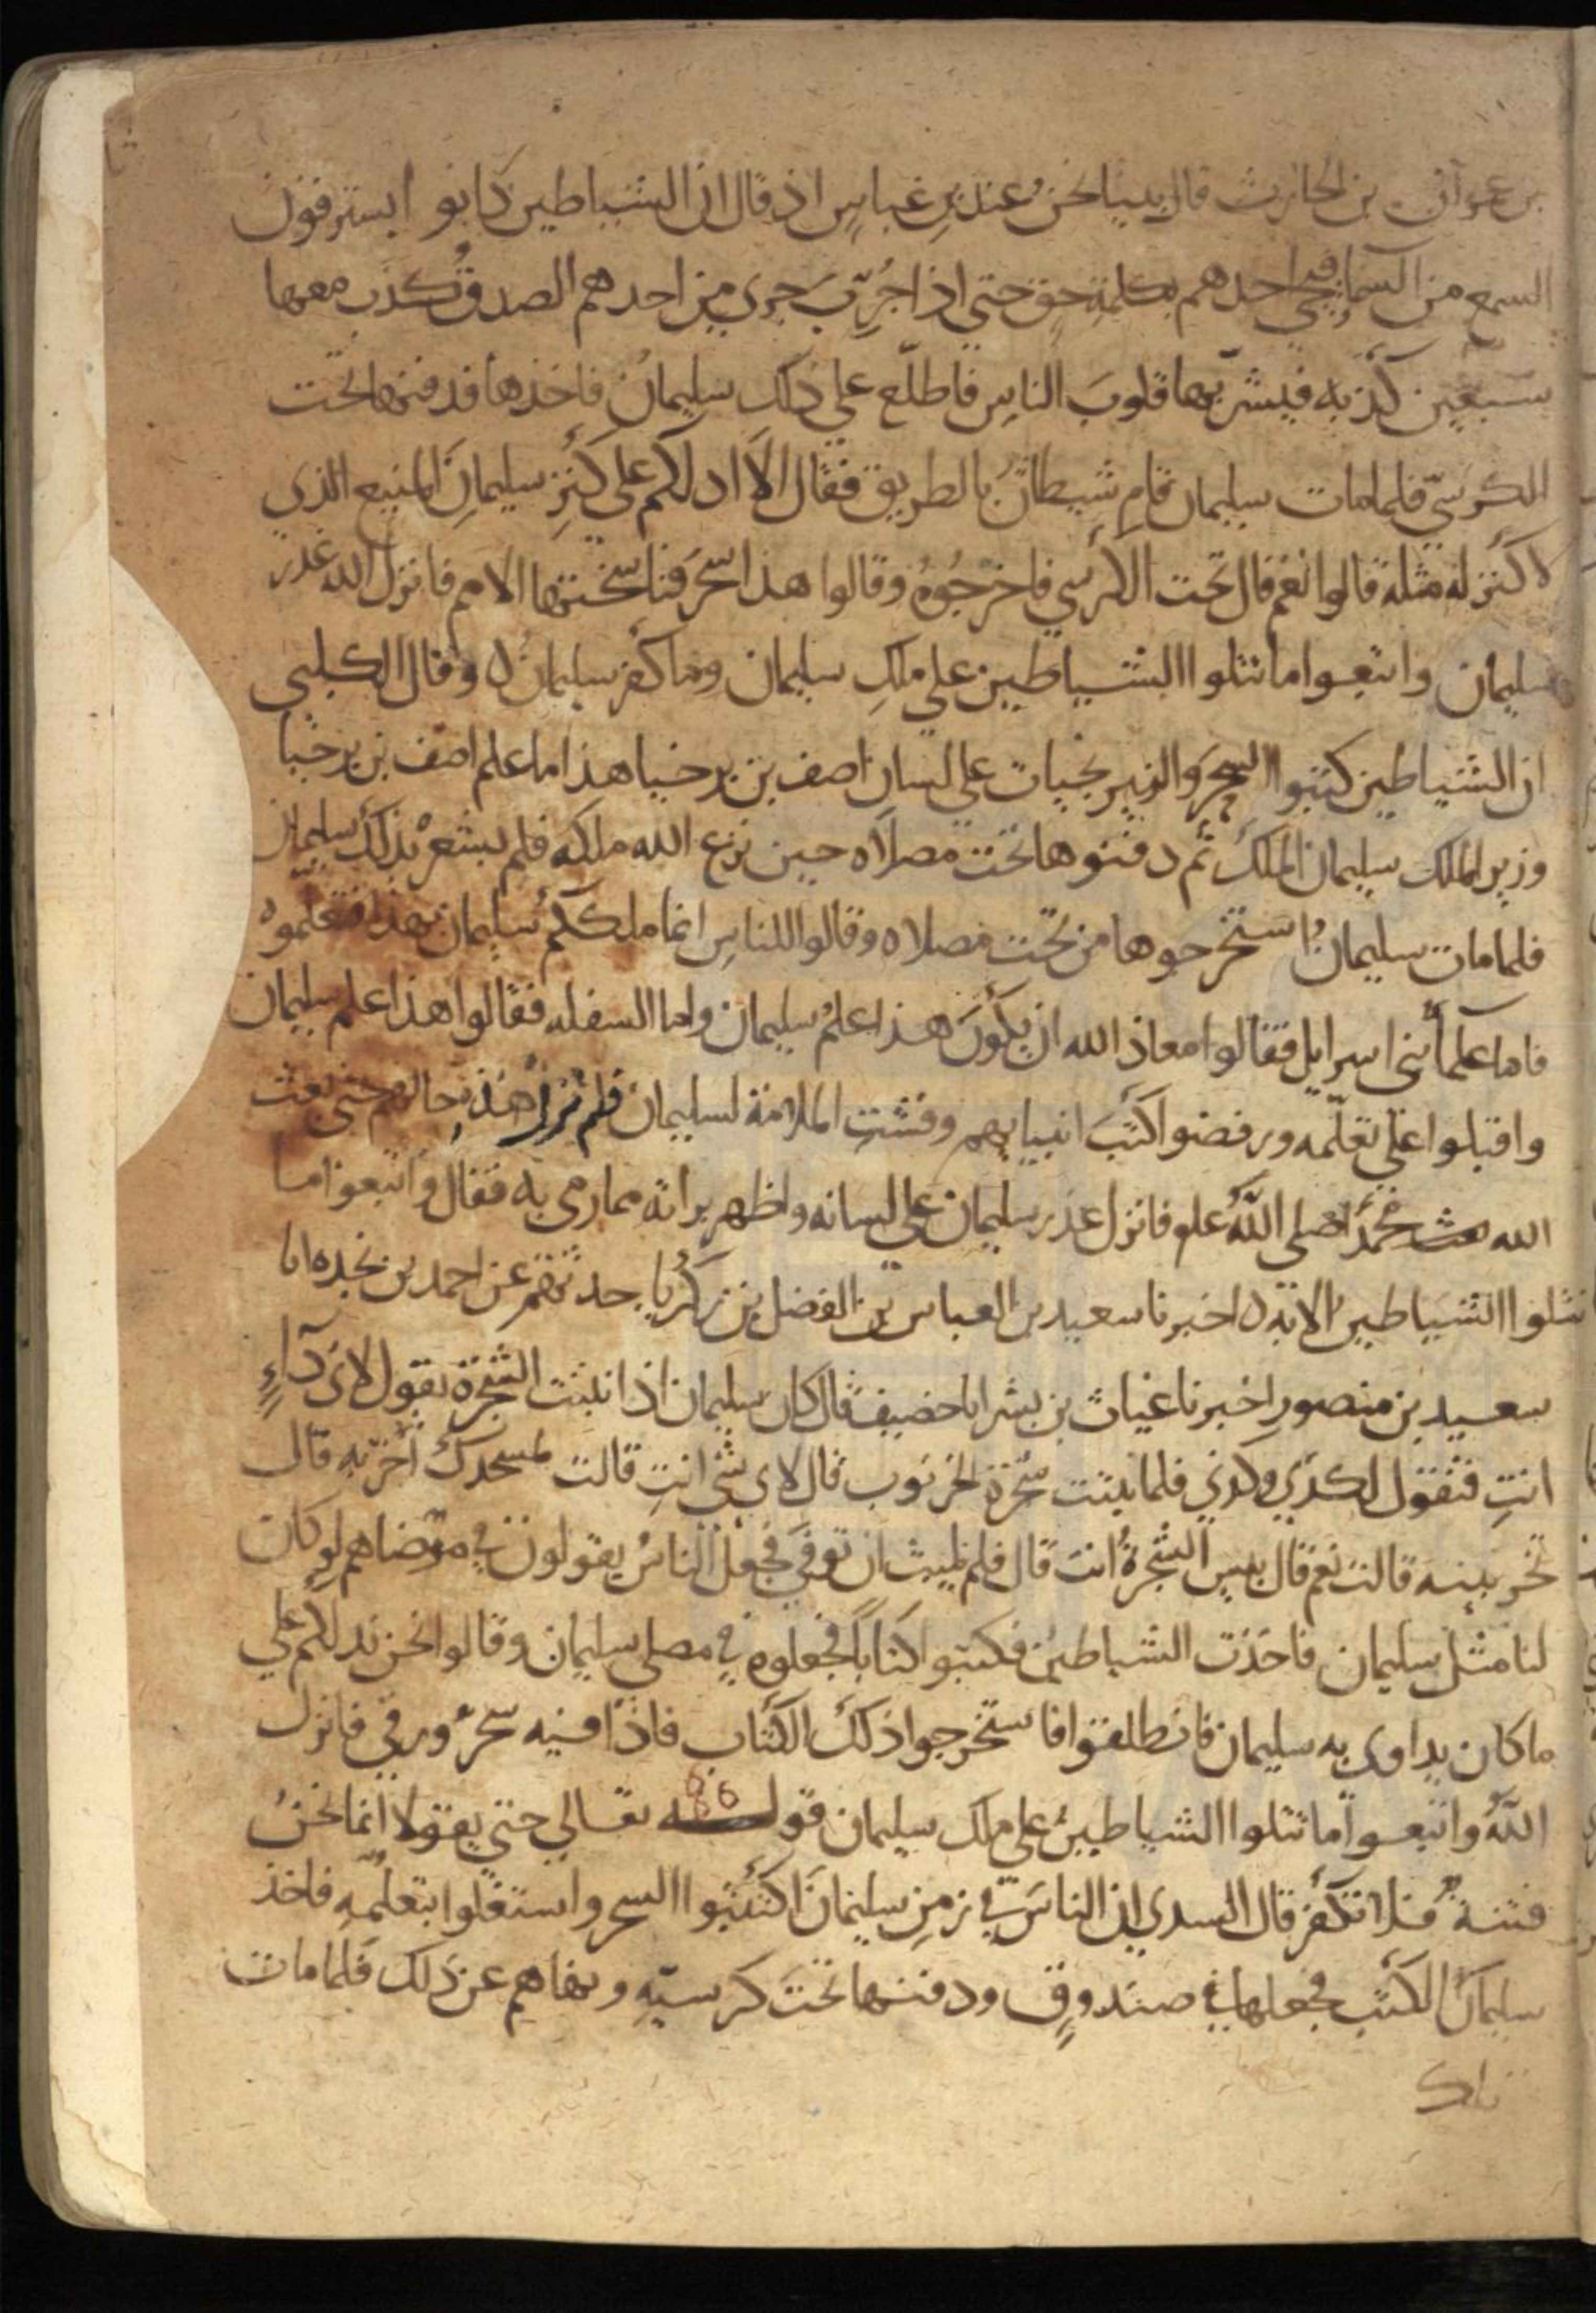 بن عمران بن الحارث قال بينا نحن عند بن عباس اذ قال ان الشياطين كانوا يسترقون
السمع من السما فيجي احدهم بكلمة حق حتى اذا جُرِّبَ جرى من احدهم الصدق كذب معها
سبعين كذبه فيشرّبها قلوبَ الناسِ فاطلّع على ذلك سليمانُ فاخذها فدفنها تحت
الكرسيّ فلما مات سليمان قام شيطانٌ بالطريق فقال الا ادلكم على كنزِ سليمانَ المنيع الذي
لا كنز له مثله قالوا نعم قال تحت الكرسي فاخرجُوهُ وقالوا هذا سحر فتناسختها الامم فانزل الله عذر
سليمان واتبعوا ما تتلوا الشياطين على ملكِ سليمان وما كفر سليمان ه وقال الكلبي
ان الشياطين كتبوا السحرَ والنيرنجيات على لسان اصف بن برخيا هذا ما علم اصف بن برخيا
وزير الملك سليمان الملك ثم دفنوها تحت مصلاه حين نزع الله ملكه فلم يشعرْ بذلك سليمان
فلما مات سليمانُ استخرجوها من تحت مصلاه وقالوا للناسِ انما ملككم سليمان بهذا فتعلموهُ
فاما علمأ بني اسرايل فقالوا معاذ الله ان يكونَ هذا علمُ سليمان واما السفله فقالوا هذا علم سليمان
واقبلوا على تعلّمه ورفضوا كتبَ انبيايهم وفشتِ الملامة لسليمان فلم تزل هذهِ حالهم حتى بعث
الله محمدًا صلى اللّه علم فانزل عذر سليمان على لسانه واظهر براته مما رمي به فقال واتبعوا ما
تتلوا الشياطين الايه ه اخبرنا سعيد بن العباس بن الفضل بن زكريا حدثهم عن احمد بن نجده انا
سعيد بن منصور اخبرنا غياث بن بشر انا حصيف قال كان سليمان اذا نبتت الشجرة يقول لاي دآءٍ
انتِ فتقول لكذي وكذي فلما نبتت شجرة الخرنوب قال لاي شي انتِ قالت لمسجدك اخربه قال
تخربينه قالت نعم قال بيس الشجرةُ انت قال فلم يلبث ان توفي فجعل الناسُ يقولون في مرضاهم لو كان
لنا مثل سليمان فاخذت الشياطين فكتبوا كتاباً فجعلوه في مصلى سليمان وقالوا نحن ندلكم على
ما كان يداوي به سليمان فانطلقوا فاستخرجوا ذلك الكتاب فاذا فيه سحرٌ ورقي فانزل
اللّهُ واتبعوا ما تتلوا الشياطين على ملك سليمان قوله تعالي حتى يقولا انما نحنُ
فتنةٌ فلا تكفر قال السدي ان الناسَ في زمنِ سليمانَ اكتتبوا السحر واستغلوا بتعلمِهِ فاخذ
سليمانُ الكتب فجعلها في صندوقٍ ودفنها تحت كرسيّهِ ونهاهم عن ذلك فلما مات